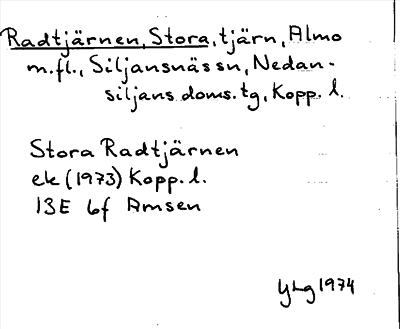 Radtjärnen, Stora, tjärn, Almo
m.fl., Siljansnäs sn, Nedan-
siljans doms. tg, Kopp. l.
Stora Radtjärnen
ek (1973) Kopp. l.
13E 6f Amsen
YLg 1974